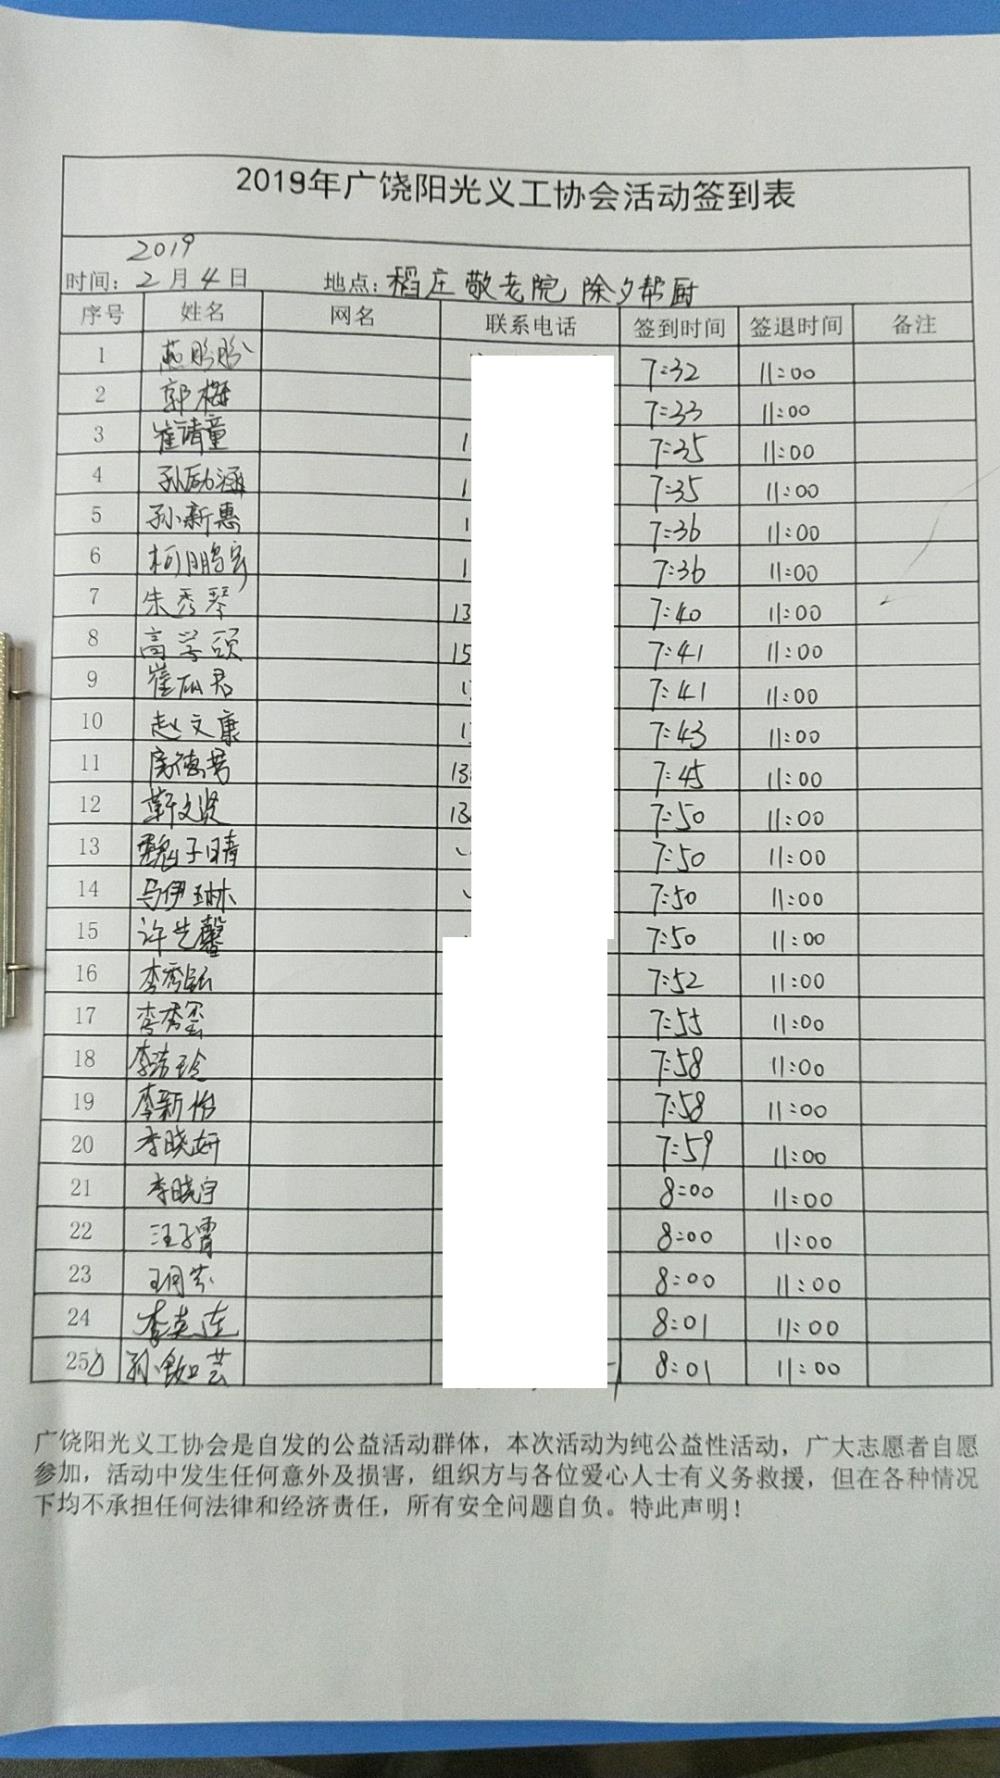 2019年广饶阳光义工协会活动签到表
2019
时间: 2月4日 地点: 稻庄敬老院 除夕帮厨
序号 姓名 网名 联系电话 签到时间 签退时间 备注
1 7:32 11:00
2 郭梅 7:33 11:00
3 崔靖童 1 7:35 11:00
4 孙励涵 1 7:35 11:00
5 孙新惠 1 7:36 11:00
6 柯鹏宇 1 7:36 11:00
7 朱秀琴 13 7:40 11:00
8 高学颂 15 7:41 11:00
9 1 7:41 11:00
10 赵文康 1 7:43 11:00
11 房德芳 13 7:45 11:00
12 靳文贤 7:50 11:00
13 魏子晴 7:50 11:00
14 马伊琳 7:50 11:00
15 许艺馨 7:50 11:00
16 7:52 11:00
17 7:55 11:00
18 7:58 11:00
19 李新怡 7:58 11:00
20 李晓妍 7:59 11:00
21 李晓宇 8:00 11:00
22 汪子霄 8:00 11:00
23 8:00 11:00
24 李英连 8:01 11:00
25 8:01 11:00
广饶阳光义工协会是自发的公益活动群体，本次活动为纯公益性活动，广大志愿者自愿
参加，活动中发生任何意外及损害，组织方与各位爱心人士有义务救援，但在各种情况
下均不承担任何法律和经济责任，所有安全问题自负。特此声明！